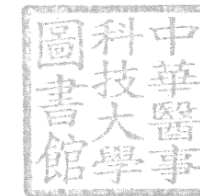 中華醫事
科技大學
圖書館